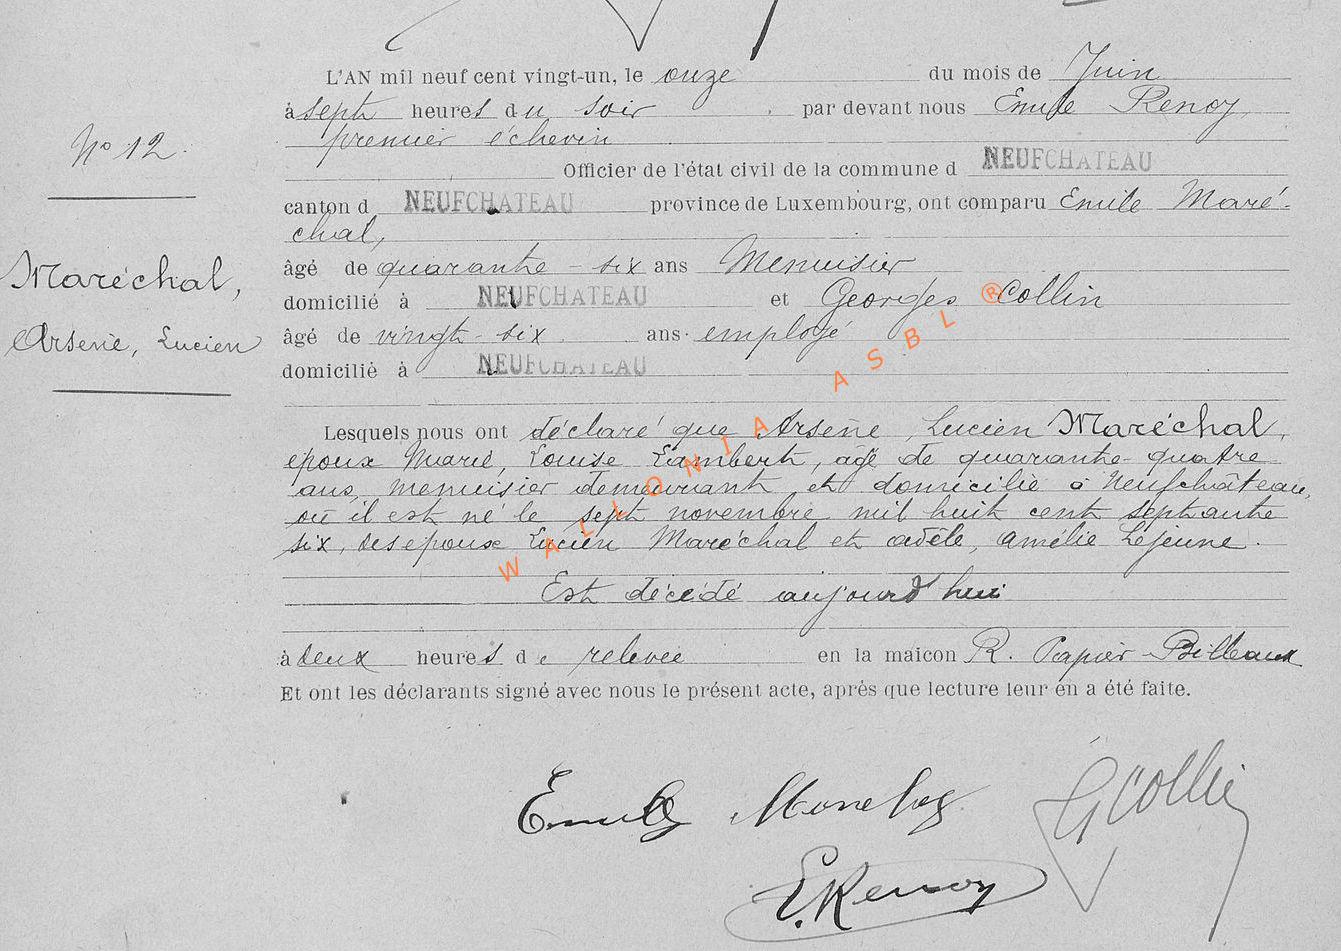 L'AN mil neuf cent vingt-un, le onze du mois de Juin
à sept heures du soir par devant nous Emile Renoy,
premier échevin
Nº 12.
Officier de l'état civil de la commune d NEUFCHATEAU
canton d NEUFCHATEAU province de Luxembourg, ont comparu Emile Maré-
chal,
Maréchal,
Arsène, Lucien
âgé de quarante-six ans Menuisier
domicilié à NEUFCHATEAU et Georges Collin
âgé de vingt-six ans employé
domicilié à NEUFCHATEAU
Lesquels nous ont déclaré que Arsène, Lucien Maréchal,
époux Marie, Louise Lambert, agé de quarante-quatre
ans, menuisier demeurant et domicilié à Neufchâteau,
où il est né le sept novembre mil huit cent septante
six, des époux Lucien Maréchal et Adèle, Amélie Lejeune.
Est décédé aujourd'hui
à deux heures de relevée en la maicon R. Papier-Billaux
Et ont les déclarants signé avec nous le présent acte, après que lecture leur en a été faite.
GCollin
E.Renoy
WALLONIA ASBL ®